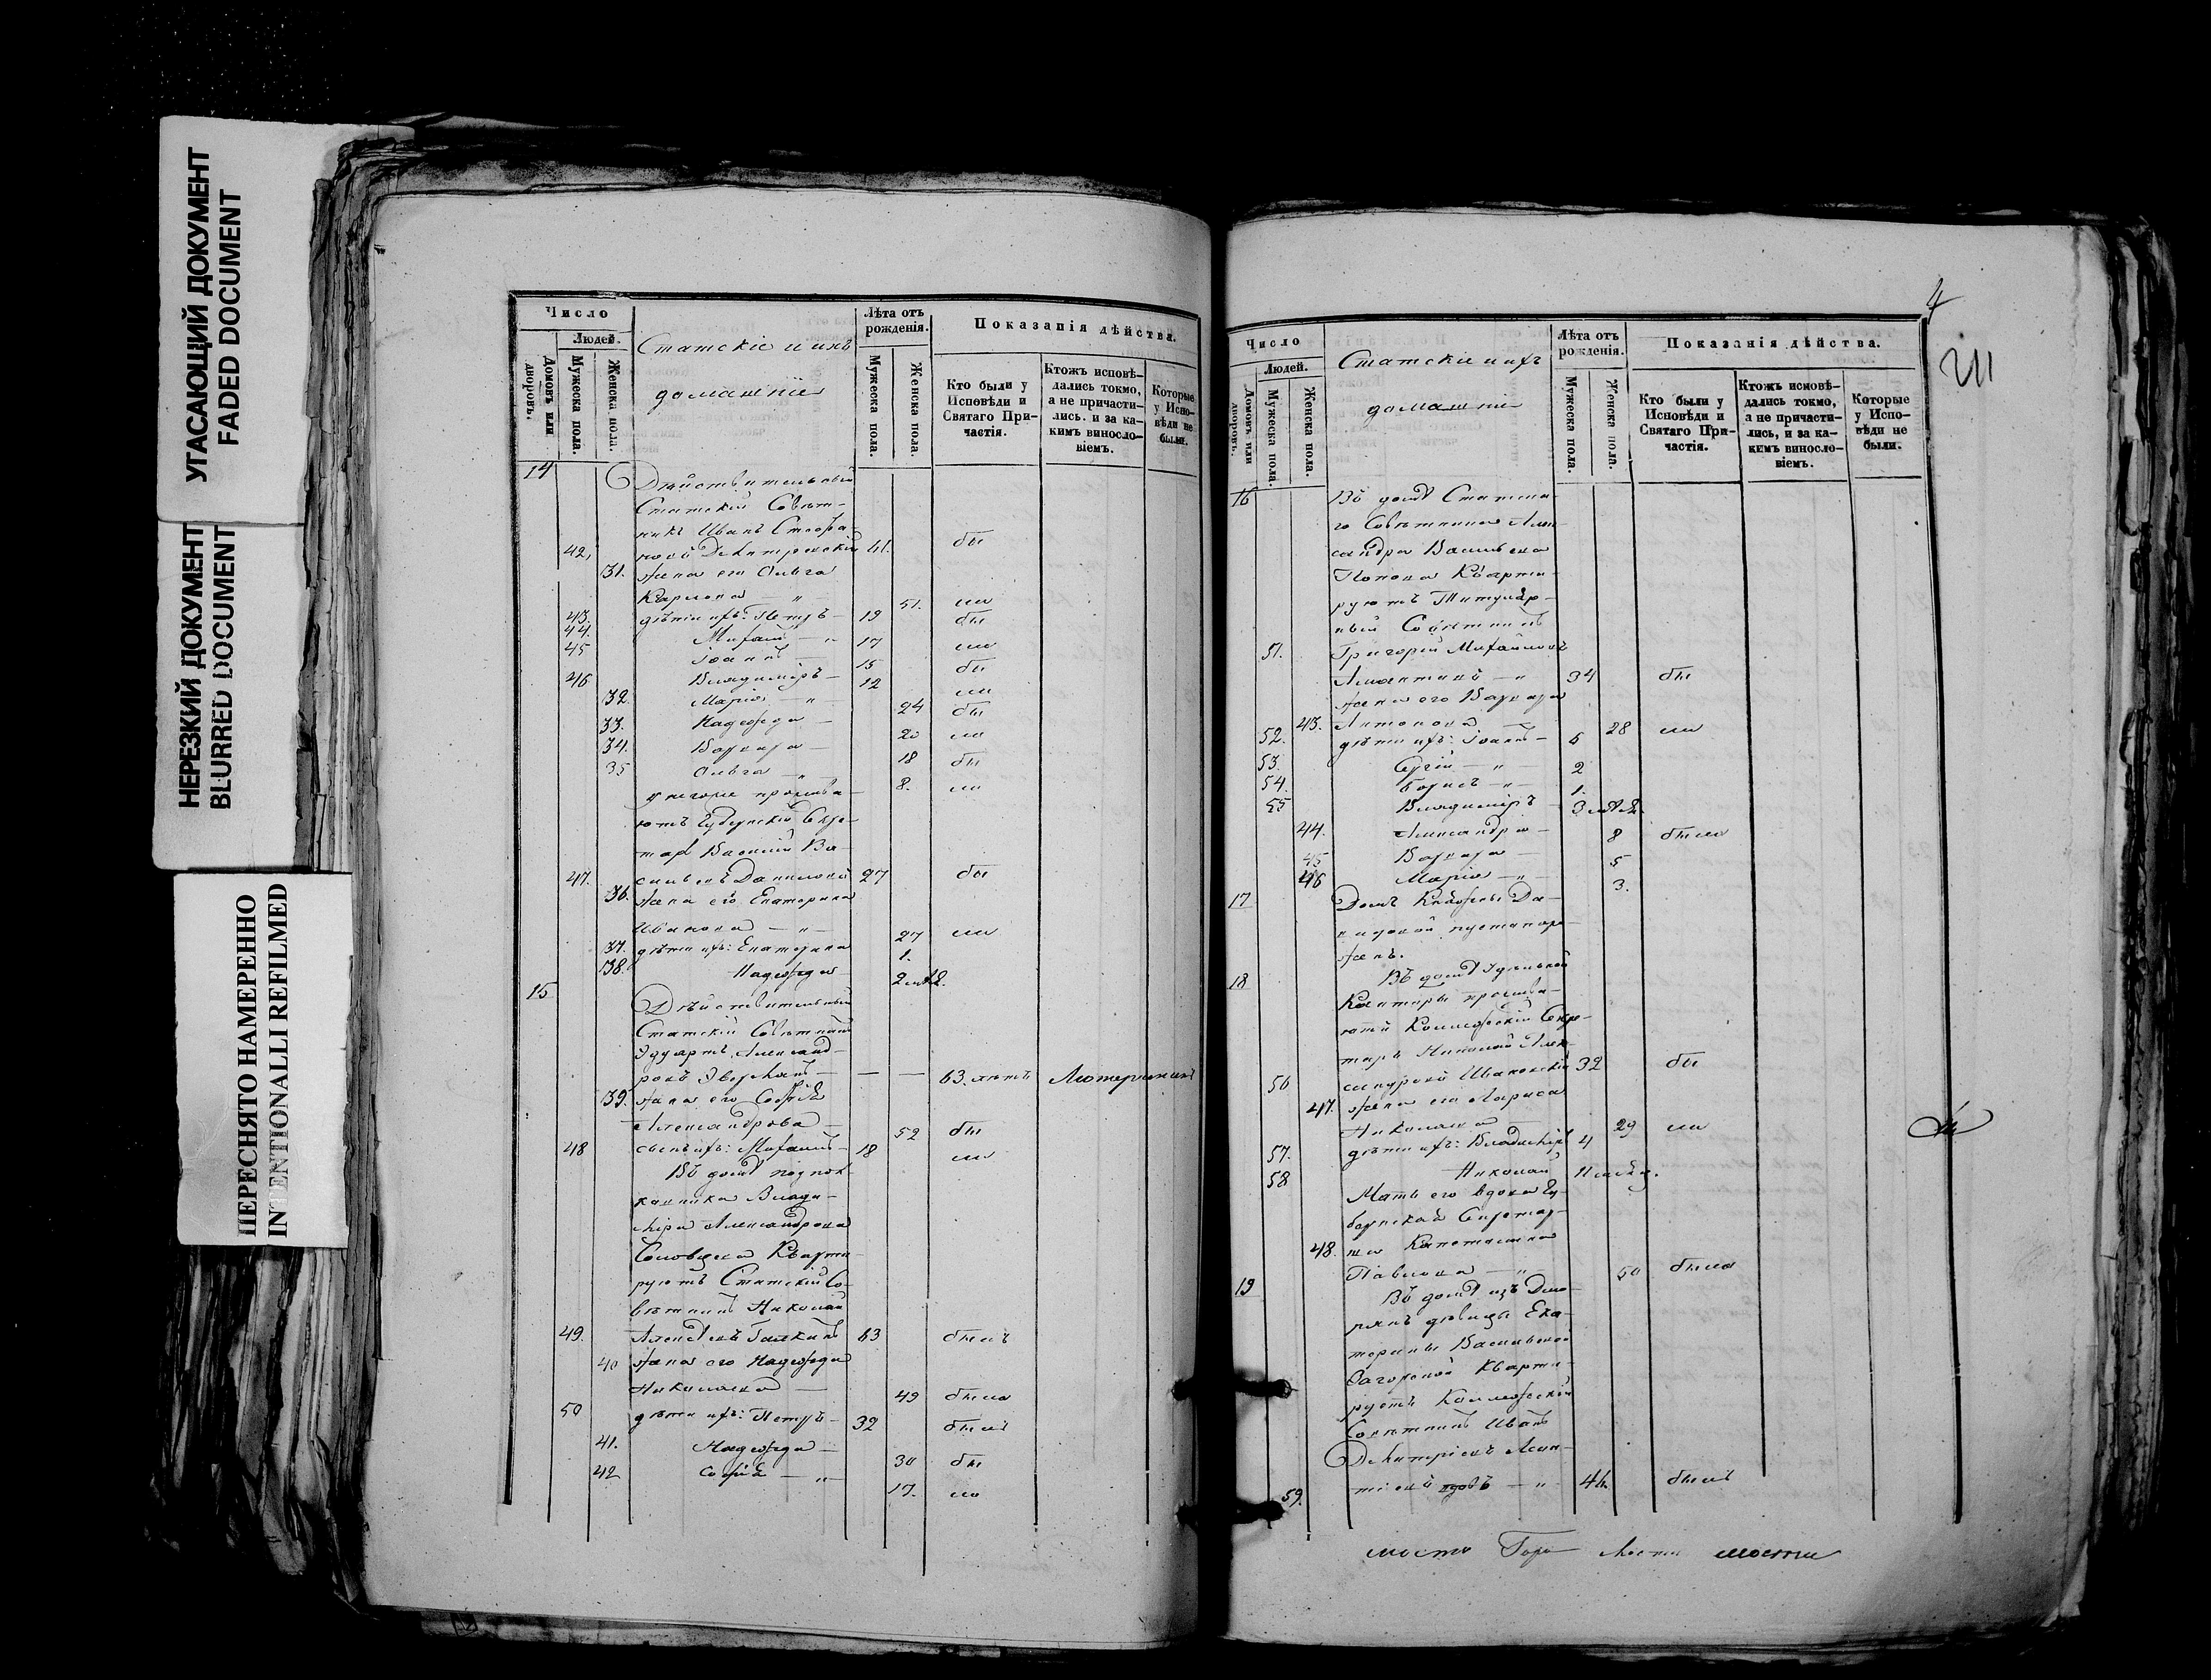 УГАСАЮЩИЙ ДОКУМЕНТ
FADED DOCUMENT
НЕРЕЗКИЙ ДОКУМЕНТ
BLURRED DOCUMENT
ПЕРЕСНЯТО НАМЕРЕННО
INTENTIONALLI REFILMED
Число
Людей.
Домовъ или дворовъ.
Мужеска пола.
Женска пола.
Статскіе и ихъ
домашніе
Лѣта отъ рожденія.
Мужеска пола.
Женска пола.
Показанія дѣйства.
Кто были у Исповѣди и Святаго Причастія.
Ктожъ исповѣдались токмо, а не причастились, и за какимъ винословіемъ.
Которые у Исповѣди не были.
14 Дѣйствительный
Статскій Совѣт-
никъ Иванъ Стефа-
42. новъ Дмитревскій 61. бы
31. жена его Ольга
Карпова — " 51. ли
43. дѣти ихъ: Петръ — 19 бы
44. Михаилъ — " 17 ли
45 Іоаннъ — 15 бы
46 Владиміръ — 12 ли
32. Марія — " 24 бы
33. Надежда — 20 ли
34. Варвара — 18 бы
35 Ольга — " 8. ли
у негоже прожива-
ютъ Губернскій Секре-
тарь Василій Ва-
47. сильевъ Даниловъ 27 бы
36. жена его Екатерина
Иванова — " 27 ли
37. дѣти ихъ: Екатерина 1.
38. Надежда 2 мѣс.
15 Дѣйствительный
Статскій Совѣтникъ
Эдуартъ Александ-
ровъ — — 63. лѣтъ Лютеранинъ
39. жена его Софія
Александрова — 52 бы
48 сынъ ихъ: Михаилъ — 18 ли
Въ домѣ подпол-
ковника Влади-
міра Александрова
Кварти-
руютъ Статскій Со-
вѣтникъ Николай
49. Алексѣевъ Галкинъ 63 былъ
40 жена его Надежда
Николаева — 49 была
50 дѣти ихъ: Петръ — 32 былъ
41. Надежда — 30 бы
42 Софія — " 17. ли
4
211
Число
Людей.
Домовъ или дворовъ.
Мужеска пола.
Женска пола.
Статскіе и ихъ
домашніе
Лѣта отъ рожденія.
Мужеска пола.
Женска пола.
Показанія дѣйства.
Кто были у Исповѣди и Святаго Причастія.
Ктожъ исповѣдались токмо, а не причастились, и за какимъ винословіемъ.
Которые у Исповѣди не были.
16 Въ домѣ Статска-
го Совѣтника Алек-
сандра Васильева
Попова Кварти-
руютъ Титуляр-
ный Совѣтникъ
51. Григорій Михайловъ
— " 34 бы
жена его Варвара
43. Антонова — 28 ли
52. дѣти ихъ: Іоаннъ — 6
53. Сергій — " 2
54. Борисъ — " 1.
55 Владиміръ 3 мѣс.
44. Александра — 8 была
45 Варвара — 5
46 Марія — " 3.
17 Домъ Да-
видовой пустапоро-
женъ.
18 Въ домѣ Удѣльной
Конторы прожива-
ютъ Коллежскій Секре-
тарь Николай Алек-
56 сандровъ Ивановскій 32 бы
47. жена его Лариса
Николаева — 29 ли
57. дѣти ихъ: Владиміръ 4
58 Николай 11 мѣс.
Мать его вдова Гу-
бернская Секретар-
48. ша Капетолина
Павлова — " 50 была
19 Въ домѣ изъ Дво-
рянъ дѣвицы Ека-
терины Васильевой
Загорской Кварти-
руетъ Коллежскій
Совѣтникъ Иванъ
Дмитріевъ
59. вдовъ — " 46. былъ